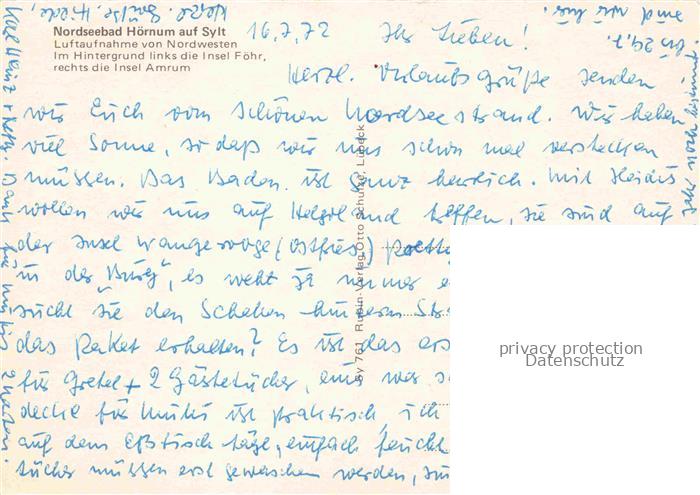 Nordseebad Hörnum auf Sylt
Luftaufnahme von Nordwesten
Im Hintergrund links die Insel Föhr,
rechts die Insel Amrum
16.7.72 Ihr Lieben!
Herzl. Urlaubsgrüße senden
wir Euch vom schönen Nordseestrand. Wir haben
viel Sonne, so daß wir uns schon mal verstecken
müssen. Das Baden ist ganz herrlich. Mit Heidis
wollen wir uns auf Helgoland treffen, sie sind auf
der Insel Wangerooge (Ostfries)
in der Burg", es weht ja immer
sucht sie den Schatten hinterm
das Paket erhalten? Es ist das
für Gretel + 2 Gästetücher, eins war
decke für Mutti ist praktisch, ich
auf dem Eßtisch täge, einfach feucht
tücher müssen erst gewaschen werden,
sy 761 Rubin-Verlag Otto Schulze, Lübeck
Herzl. Grüße Hilde,
Karl Heinz +
und wir uns.
privacy protection
Datenschutz